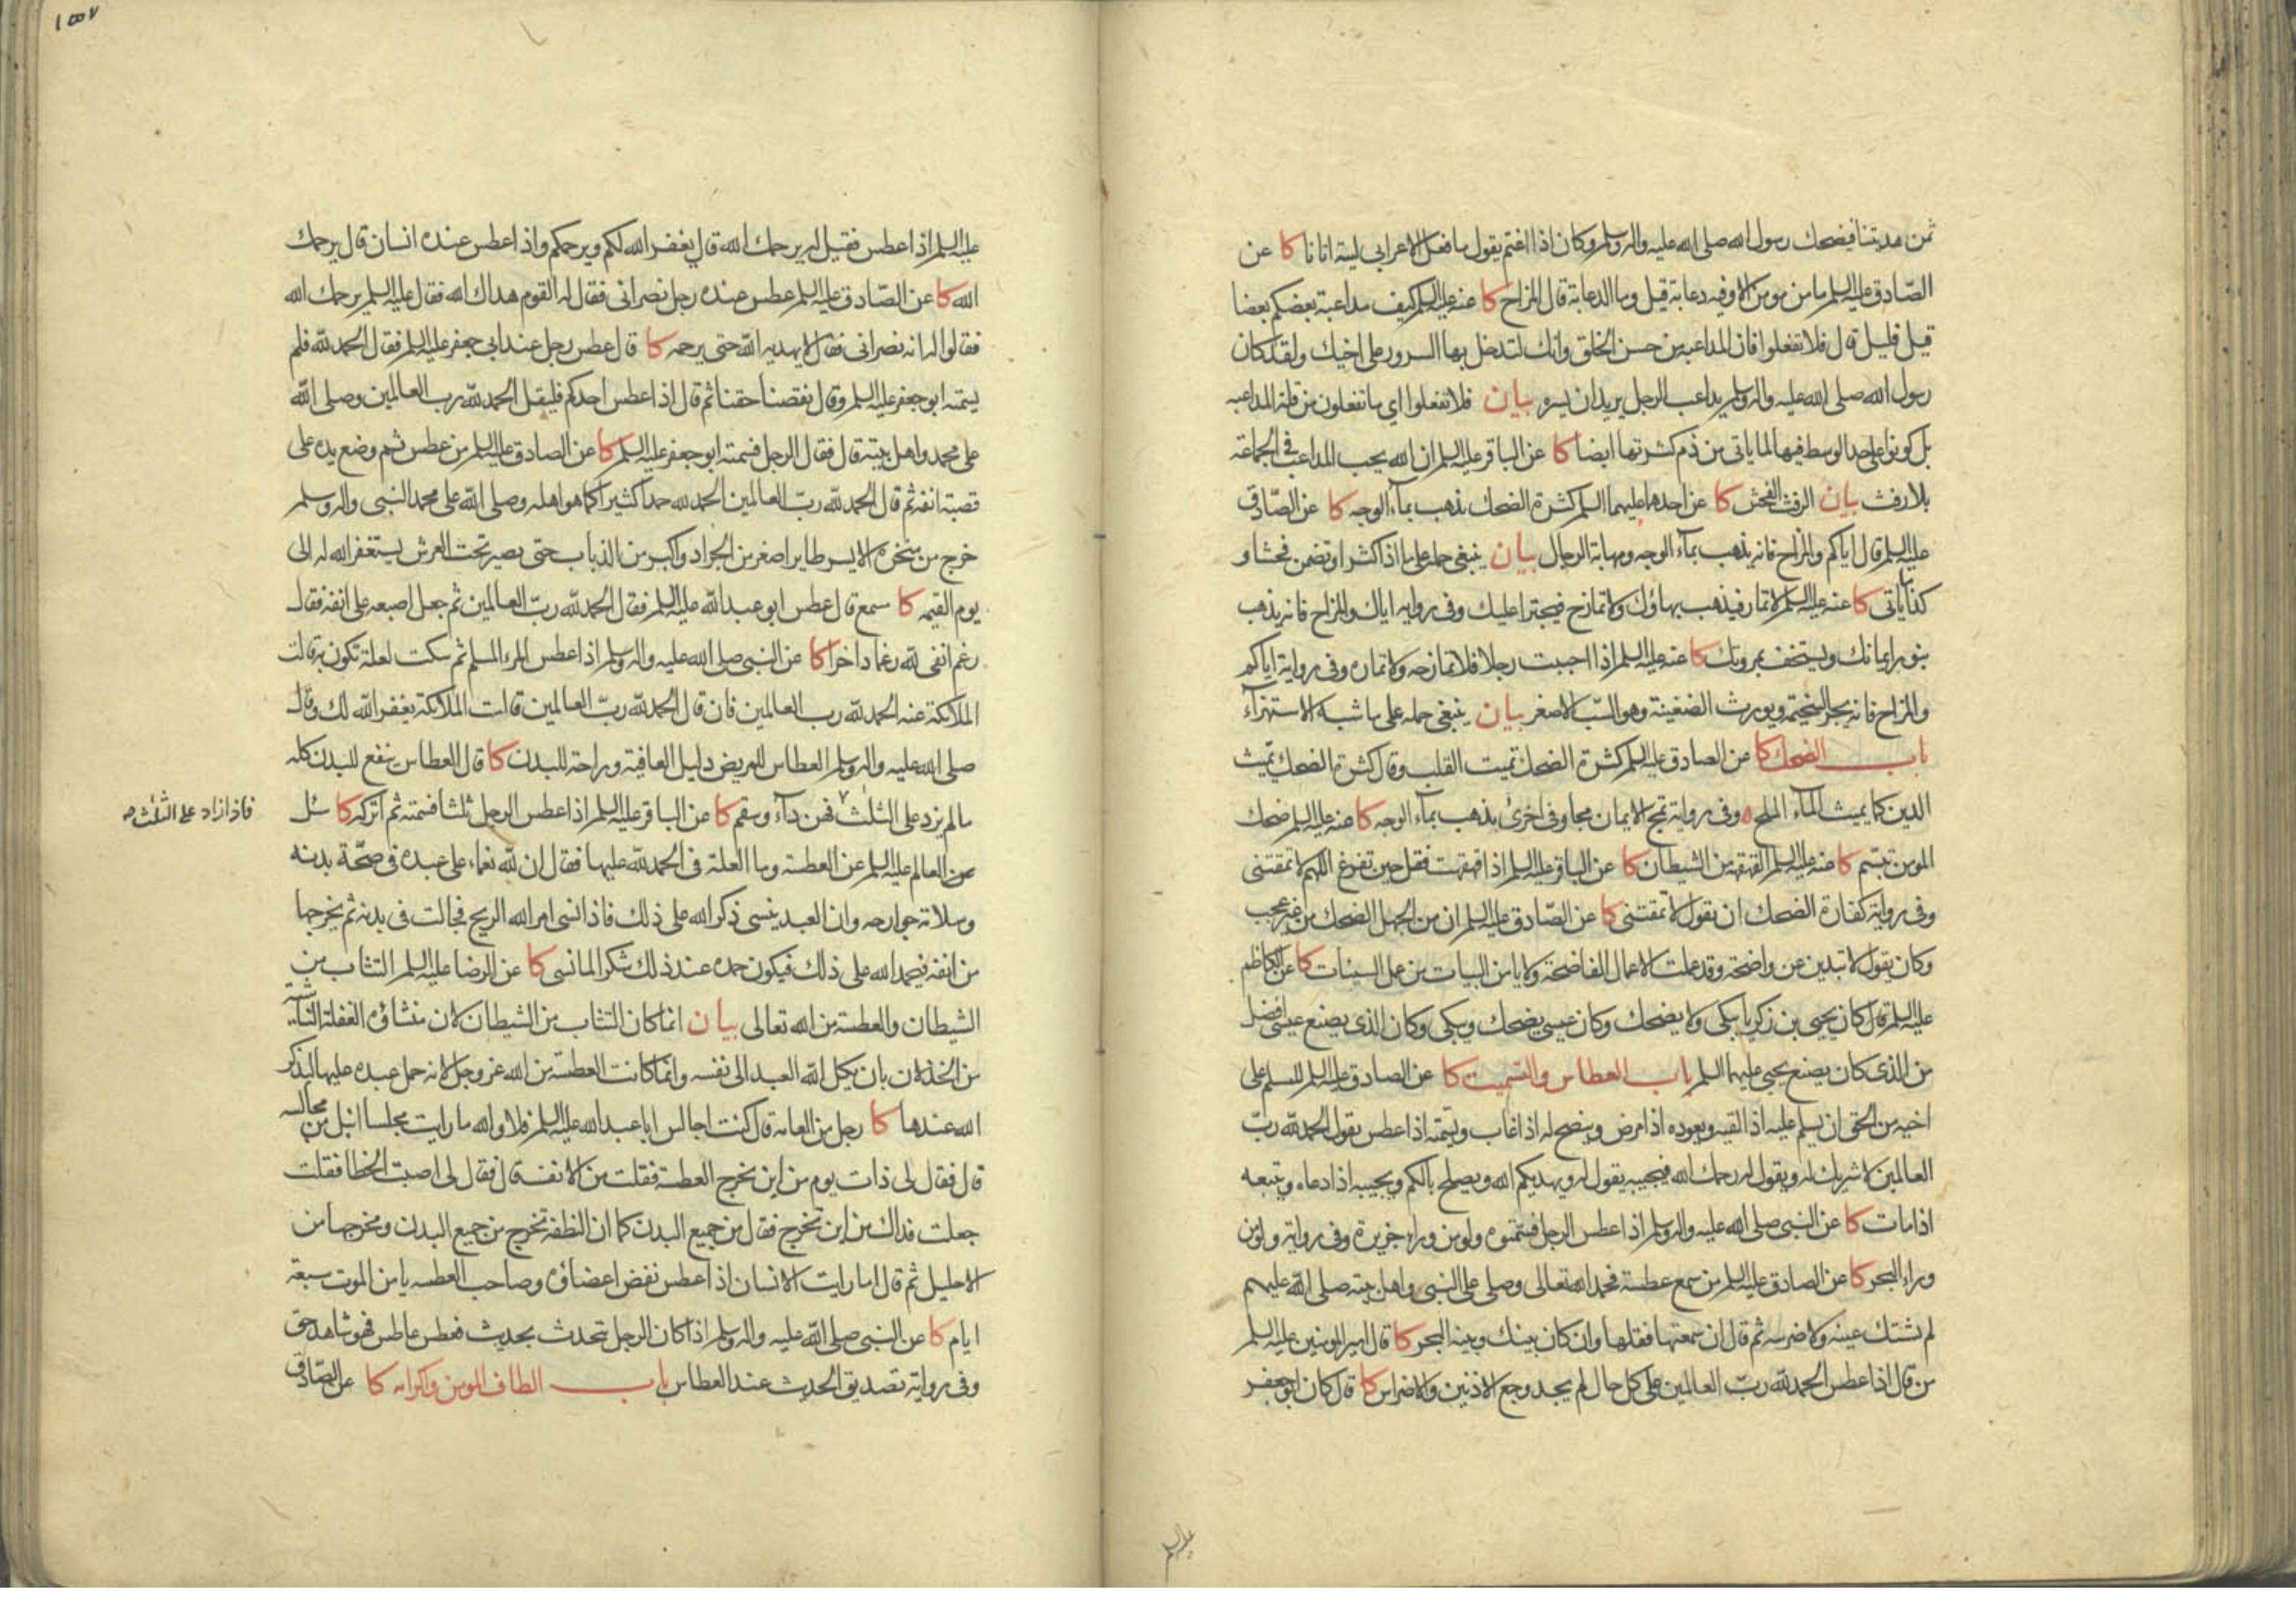 ثمن هديتنا فيضحك رسول الله صلى الله عليه واله وسلم وكان اذا اغتم يقول ما فعل الاعرابي ليته اتانا كا عن
الصّادق عليه السلم ما من مومن الا وفيه دعابة قيل وما الدعابة قال المزاح كا عنه عليه السلم كيف مداعبة بعضكم بعضا
قيل قليل قال فلا تفعلوا فان المداعبة من حسن الخلق وانك لتدخل بها السرور على اخيك ولقد كان
رسول الله صلى الله عليه واله وسلم يداعب الرجل يريد ان يسره بيان فلا تفعلوا اي ما تفعلون من قلة المداعبه
بل كونوا على حد الوسط فيها لما ياتى من ذم كثرتها ايضا كا عن الباقر عليه السلم ان الله يحب المداعب فى الجماعة
بلا رفث بيان الرفث الفحش كا عن احدهما عليهما السلم كثرة الضحك يذهب بمآء الوجه كا عن الصّادق
عليه السلم قال اياكم والمزاح فانه يذهب بمآء الوجه ومهابة الرجال بيان ينبغي حمله على ما اذا كثر او تضمن فحشا و
كذا ما ياتى كا عنه عليه السلم لا تمار فيذهب بهاؤك ولا تمازح فيجترا عليك وفى رواية اياك والمزاح فانه يذهب
بنور ايمانك ويستخف بمروتك كا عنه عليه السلم اذا احببت رجلا فلا تمازحه ولا تماره وفى رواية اياكم
والمزاح فانه يجر السخيمة ويورث الضغينة وهو السّب الاصغر بيان ينبغي حمله على ما شبه الاستهزآء
باب الضحك كا عن الصادق عليه السلم كثرة الضحك تميت القلب وقال كثرة الضحك تميث
الدين كما يميث المآء الملح ه وفى رواية تمج الايمان مجا وفى اخرى يذهب بمآء الوجه كا عنه عليه السلم ضحك
المومن تبسّم كا عنه عليه السلم القهقهة من الشيطان كا عن الباقر عليه السلم اذا قهقهت فقل حين تفرغ اللهم لا تمقتنى
وفى رواية كفارة الضحك ان تقول لا تمقتنى كا عن الصّادق عليه السلم ان من الجهل الضحك من غير عجب
وكان يقول لا تبدين عن واضحة وقد عملت الاعمال الفاضحة ولا يامن البيات من عمل السيئات كا عن الكاظم
عليه السلم قال كان يحيى بن زكريا يبكى ولا يضحك وكان عيسى يضحك ويبكى وكان الذى يصنع عيسى افضل
من الذى كان يصنع يحيى عليهما السلم باب العطاس والتسميت كا عن الصادق عليه السلم للمسلم على
اخيه من الحق ان يسلم عليه اذا لقيه ويعوده اذا مرض وينصح له اذا غاب ويسمته اذا عطس يقول الحمد لله ربّ
العالمين لا شريك له ويقول له يرحمك الله فيجيبه يقول له ويهديكم الله ويصلح بالكم ويجيبه اذا دعاه ويتبعه
اذا مات كا عن النبى صلى الله عليه واله وسلم اذا عطس الرجل فسمتوه ولو من وراء جزيرة وفى رواية ولو من
وراء البحر كا عن الصادق عليه السلم من سمع عطسة فحمد الله تعالى وصلى على النبى واهل بيته صلى الله عليهم
لم تشتك عينه ولا ضرسه ثم قال ان سمعتها فقلها وان كان بينك وبينه البحر كا قال امير المومنين عليه السلم
من قال اذا عطس الحمد لله ربّ العالمين على كل حال لم يجد وجع الاذنين والاضراس كا قال كان ابو جعفر
عليه السلم
١٥٧
عليه السلم اذا عطس فقيل له يرحمك الله قال يغفر الله لكم ويرحمكم واذا عطس عنده انسان قال يرحمك
الله كا عن الصّادق عليه السلم عطس عنده رجل نصرانى فقال له القوم هداك الله فقال عليه السلم يرحمك الله
فقالوا له انه نصرانى فقال لا يهديه الله حتى يرحمه كا قال عطس رجل عند ابي جعفر عليه السلم فقال الحمد لله فلم
يسمته ابو جعفر عليه السلم وقال نقصنا حقنا ثم قال اذا عطس احدكم فليقل الحمد لله رب العالمين وصلى الله
على محمد واهل بيته قال فقال الرجل فسمته ابو جعفر عليه السلم كا عن الصادق عليه السلم من عطس ثم وضع يده على
قصبة انفه ثم قال الحمد لله ربّ العالمين الحمد لله حمدا كثيرا كما هو اهله وصلى الله على محمد النبى واله وسلم
خرج من منخره الايسر طاير اصغر من الجراد واكبر من الذباب حتى يصير تحت العرش يستغفر الله له الى
يوم القيمه كا سمع قال عطس ابو عبد الله عليه السلم فقال الحمد لله ربّ العالمين ثم جعل اصبعه على انفه فقال
رغم انفى لله رغما داخرا كا عن النبى صلى الله عليه واله وسلم اذا عطس المرء المسلم ثم سكت لعلة تكون به قالت
الملائكة عنه الحمد لله رب العالمين فان قال الحمد لله ربّ العالمين قالت الملائكة يغفر الله لك وقال
صلى الله عليه واله وسلم العطاس للمريض دليل العافية وراحة للبدن كا قال العطاس ينفع للبدن كله
ما لم يزد على الثلث فهن دآء وسقم كا عن الباقر عليه السلم اذا عطس الرجل ثلثا فسمته ثم اتركه كا سئل
فاذا زاد على الثلث صح
عن العالم عليه السلم عن العطسة وما العلة فى الحمد لله عليها فقال ان لله نعماء على عبده فى صحّة بدنه
وسلامة جوارحه وان العبد ينسى ذكر الله على ذلك فاذا نسى امر الله الريح فجالت فى بدنه ثم يخرجها
من انفه فيحمد الله على ذلك فيكون حمده عند ذلك شكرا لما نسى كا عن الرضا عليه السلم التثاب من
الشيطان والعطسة من الله تعالى بيان انما كان التثاب من الشيطان لان منشاؤه الغفلة الناشية
من الخذلان بان يكل الله العبد الى نفسه وانما كانت العطسة من الله عز وجل لانه حمل عبده عليها ليذكر
الله عندها كا رجل من العامة قال كنت اجالس ابا عبد الله عليه السلم فلا والله ما رايت مجلسا انبل من مجالسه
قال فقال لى ذات يوم من اين تخرج العطسة فقلت من الانف قال فقال لى اصبت الخطا فقلت
جعلت فداك من اين تخرج فقال من جميع البدن كما ان النطفة تخرج من جميع البدن ومخرجها من
الاحليل ثم قال اما رايت الانسان اذا عطس نفض اعضاؤه وصاحب العطسه يامن الموت سبعة
ايام كا عن النبى صلى الله عليه واله وسلم اذا كان الرجل يتحدث بحديث فعطس عاطس فهو شاهد حق
وفى رواية تصديق الحديث عند العطاس باب الطاف المومن واكرامه كا عن الصّادق